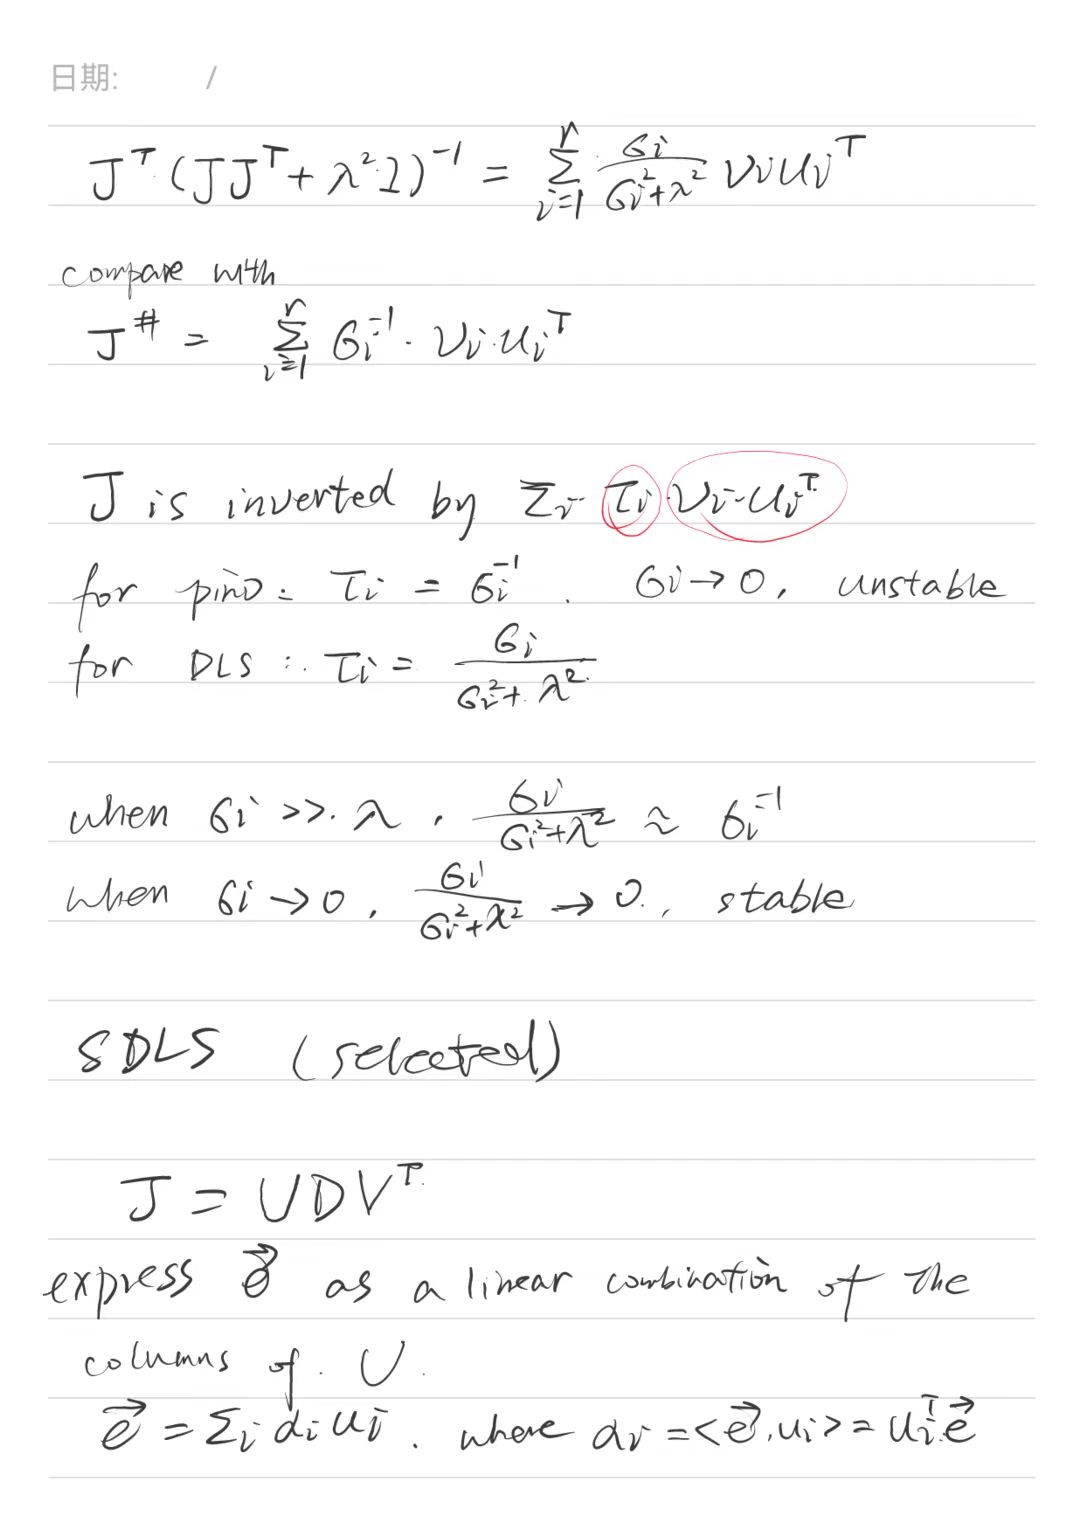 日期: /
J^T (JJ^T + λ^2 I)^{-1} = Σ_{i=1}^{r} σi / (σi^2 + λ^2) vi ui^T
compare with
J^# = Σ_{i=1}^{r} σi^{-1} · vi · ui^T
J is inverted by Σi τi vi · ui^T
for pino: τi = σi^{-1}. σi → 0, unstable
for DLS: τi = σi / (σi^2 + λ^2)
when σi >> λ, σi / (σi^2 + λ^2) ≈ σi^{-1}
when σi → 0, σi / (σi^2 + λ^2) → 0, stable
SDLS (selected)
J = UDV^T
express e⃗ as a linear combination of the
columns of U.
e⃗ = Σi αi ui. where αi = <e⃗, ui> = ui^T e⃗